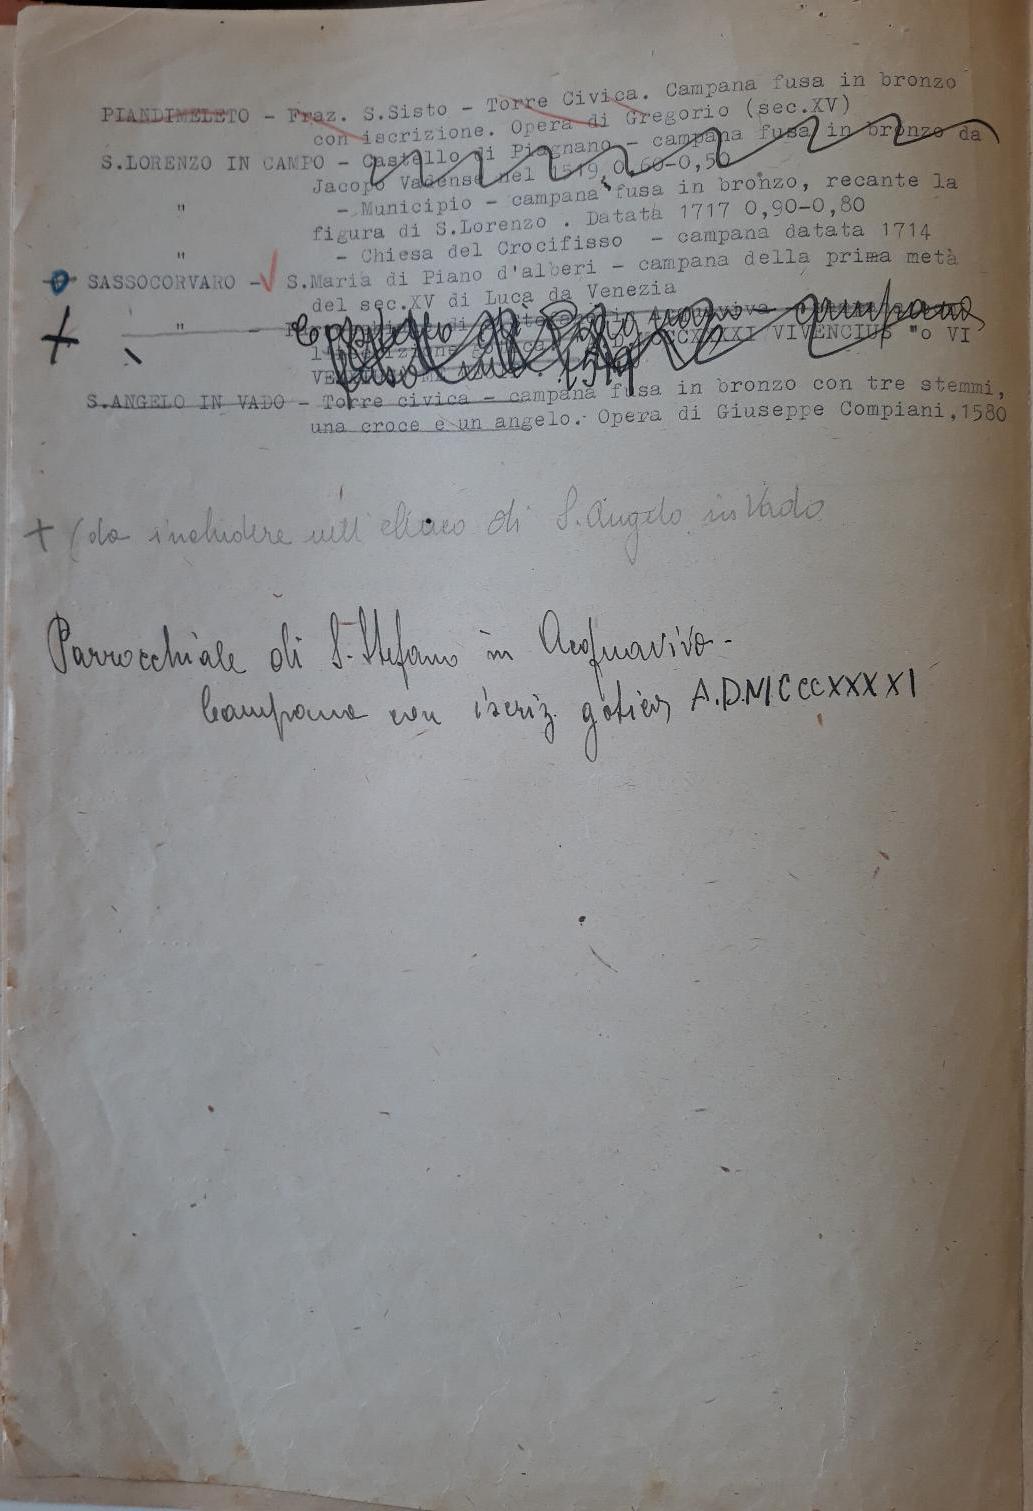 PIANDIMELETO - Fraz. S.Sisto - Torre Civica. Campana fusa in bronzo
con iscrizione. Opera di Gregorio (sec.XV)
S.LORENZO IN CAMPO - Castello di Piagnano - campana fusa in bronzo da
Jacopo Vadense nel 1519, 0,60-0,50
" - Municipio - campana fusa in bronzo, recante la
figura di S.Lorenzo . Datata 1717 0,90-0,80
" - Chiesa del Crocifisso - campana datata 1714
SASSOCORVARO - S.Maria di Piano d'alberi - campana della prima metà
del sec.XV di Luca da Venezia
+ " - campana
VIVENCIUS "o VI
VE
S.ANGELO IN VADO - Torre civica - campana fusa in bronzo con tre stemmi,
una croce e un angelo. Opera di Giuseppe Compiani,1580
+ (da includere nell'elenco di S. Angelo in Vado
Parrocchiale di S. Stefano in Acquaviva -
Campana con iscriz. gotica A.D.MCCCXXXXI